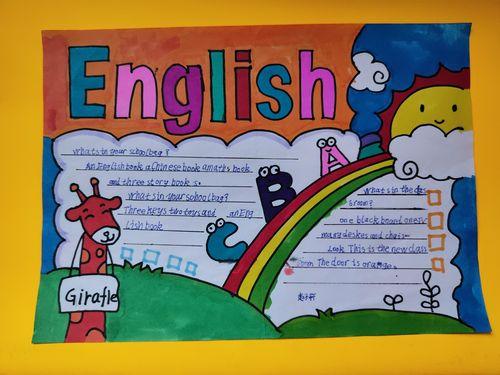 English
Whats in your school bag?
An English book a Chinese book a maths book
and three story books.
What's in your schoolbag?
Three keys two toys and an Eng
Lish book
A
B
C
What's in the clas
room?
one black board one TV
many deskes and chais
Look This is the new class
room The door is orange.
Giraffe